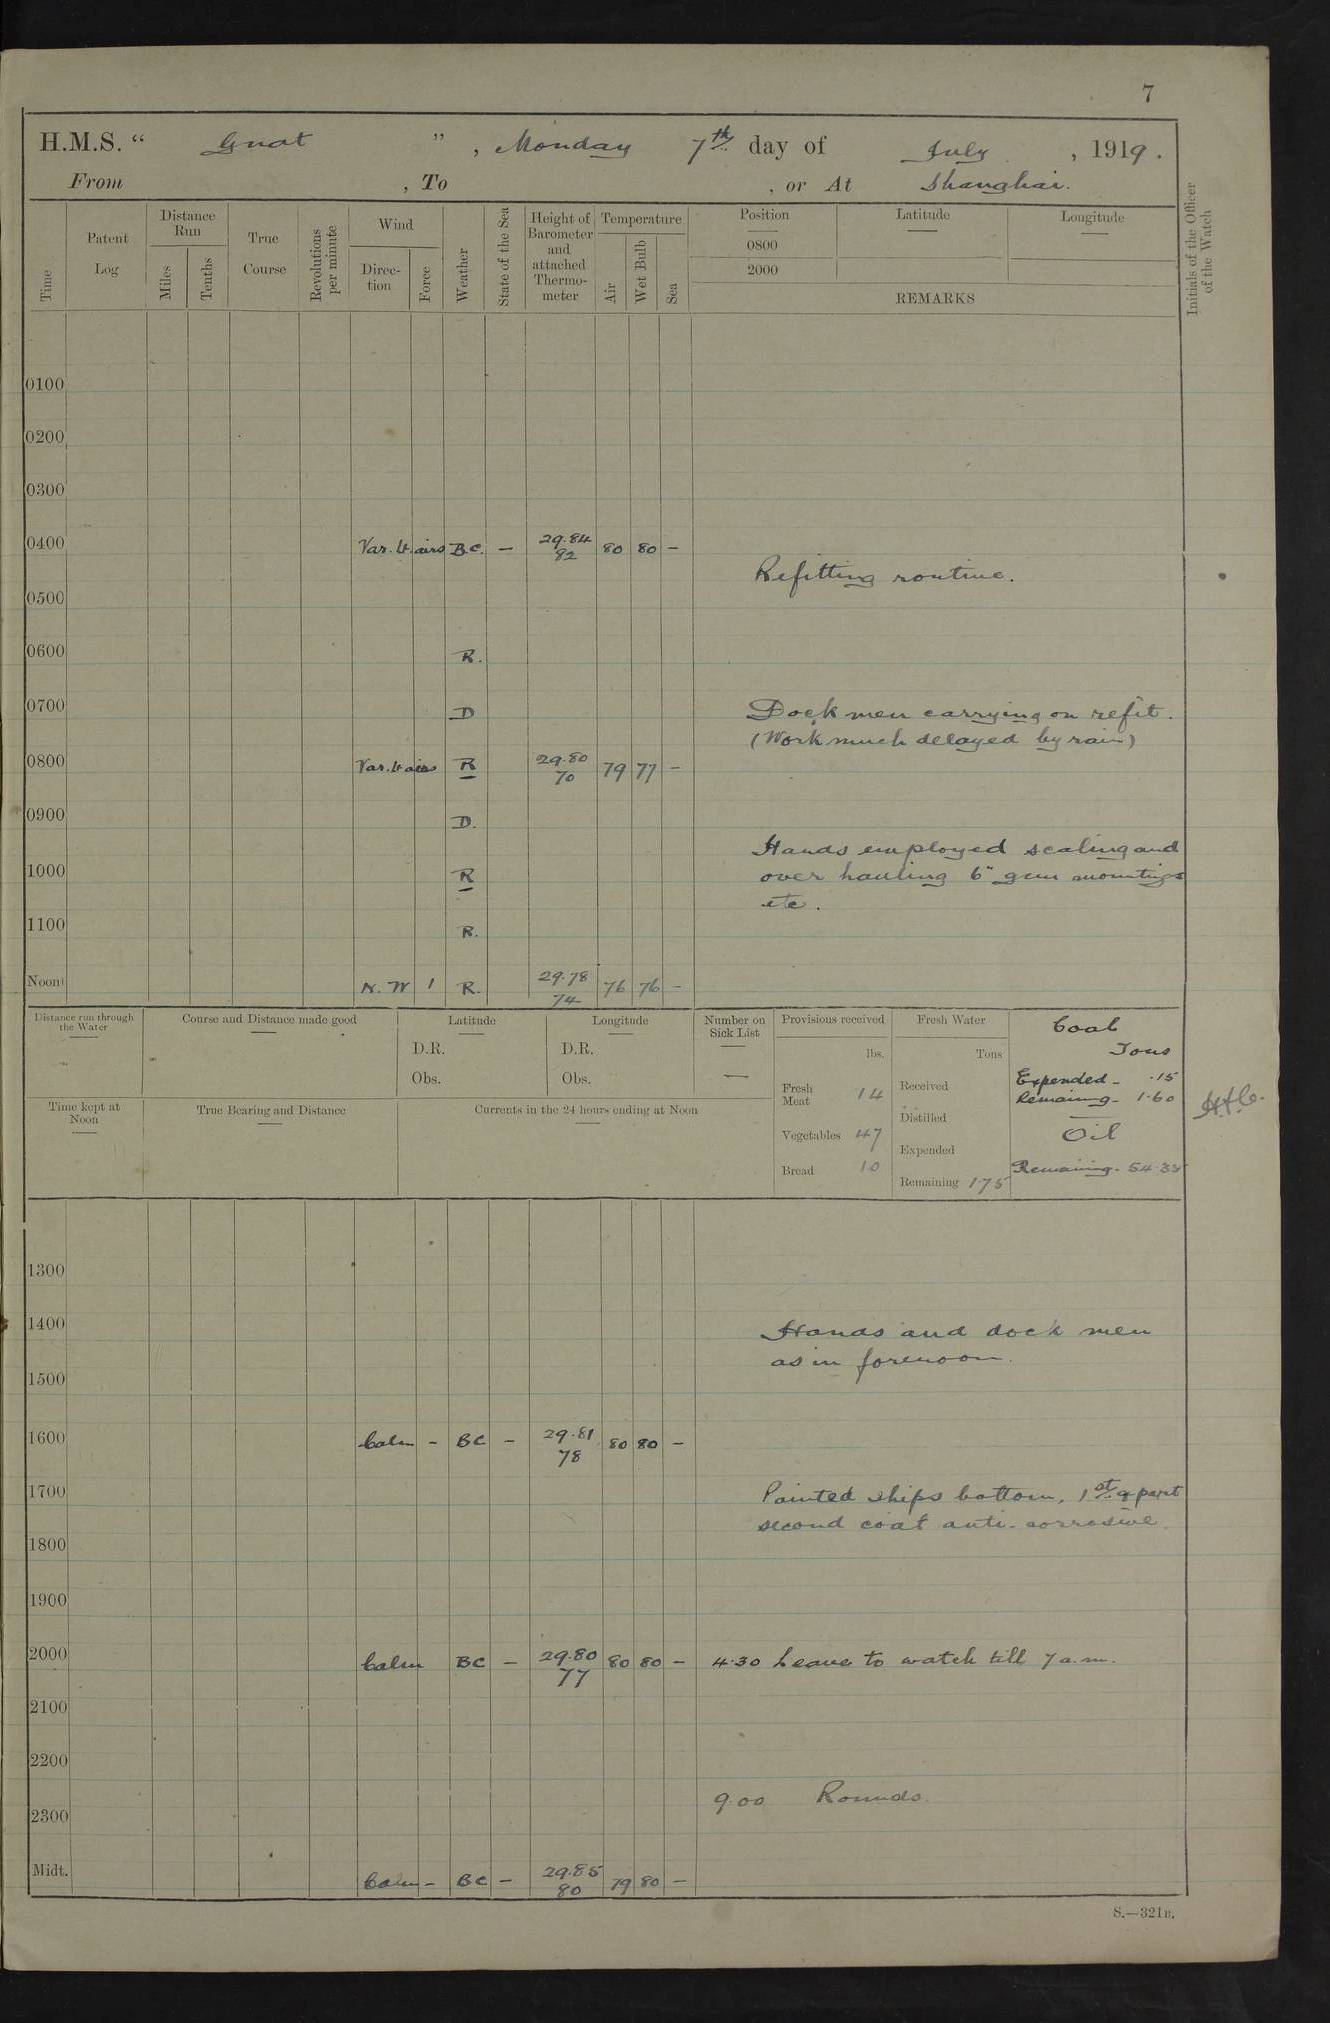 7
H.M.S. “ Gnat ”, Monday 7th day of July, 1919.
From , To , or At Shanghai.
Time
Patent Log
Distance Run
Miles
Tenths
True Course
Revolutions per minute
Wind
Direc-tion
Force
Weather
State of the Sea
Height of Barometer and attached Thermo-meter
Temperature
Air
Wet Bulb
Sea
Position Latitude Longitude
0800
2000
REMARKS
Initials of the Officer of the Watch
0100
0200
0300
0400 Var. lt. airs B.C. - 29.84 80 80 -
82
Refitting routine.
0500
0600 R.
0700 D Dock men carrying on refit.
(Work much delayed by rain)
0800 Var. lt airs R 29.80 79 77 -
70
0900 D.
Hands employed scaling and
1000 R over hauling 6" gun mountings
etc.
1100 R.
Noon N.W 1 R. 29.78 76 76 -
74
Distance run through the Water
Course and Distance made good
Latitude
D.R.
Obs.
Longitude
D.R.
Obs.
Number on Sick List
—
Provisions received
lbs.
Fresh Meat 14
Vegetables 47
Bread 10
Fresh Water
Tons
Received
Distilled
Expended
Remaining 1.75
Coal
Tons
Expended - .15
Remaining - 1.60
Oil
Remaining -
Time kept at Noon
True Bearing and Distance
Currents in the 24 hours ending at Noon
1300
1400 Hands and dock men
as in forenoon.
1500
1600 Calm - BC - 29.81 80 80 -
78
1700 Painted ships bottom, 1st & part
second coat anti-corrosive.
1800
1900
2000 Calm BC - 29.80 80 80 - 4.30 Leave to watch till 7 a.m.
77
2100
2200
9.00 Rounds.
2300
Midt. Calm - BC - 29.85 79 80 -
80
S.—321B.